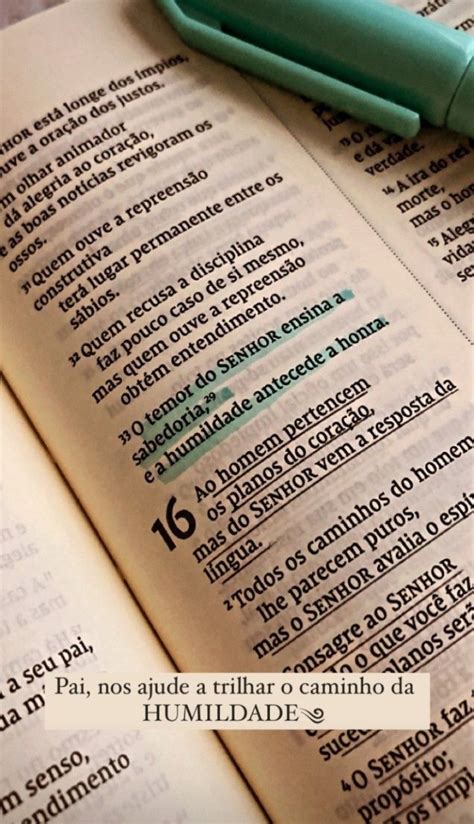 HOR está longe dos ímpios,
uve a oração dos justos.
m olhar animador
dá alegria ao coração,
e as boas notícias revigoram os
ossos.
31 Quem ouve a repreensão
construtiva
terá lugar permanente entre os
sábios.
32 Quem recusa a disciplina
faz pouco caso de si mesmo,
mas quem ouve a repreensão
obtém entendimento.
33 O temor do SENHOR ensina a
sabedoria,29
e a humildade antecede a honra.
16 Ao homem pertencem
os planos do coração,
mas do SENHOR vem a resposta da
língua.
2 Todos os caminhos do homem
lhe parecem puros,
mas o SENHOR avalia o espí
onsagre ao SENHOR
o o que você faz,
planos serã
suce
4 O SENHOR faz
propósito;
os ímp
13 O re
e dá va
verdade.
14 A ira do rei
morte,
mas o ho
15 Alegr
vida
a seu pai,
ma
m senso,
endimento
Pai, nos ajude a trilhar o caminho da
HUMILDADE